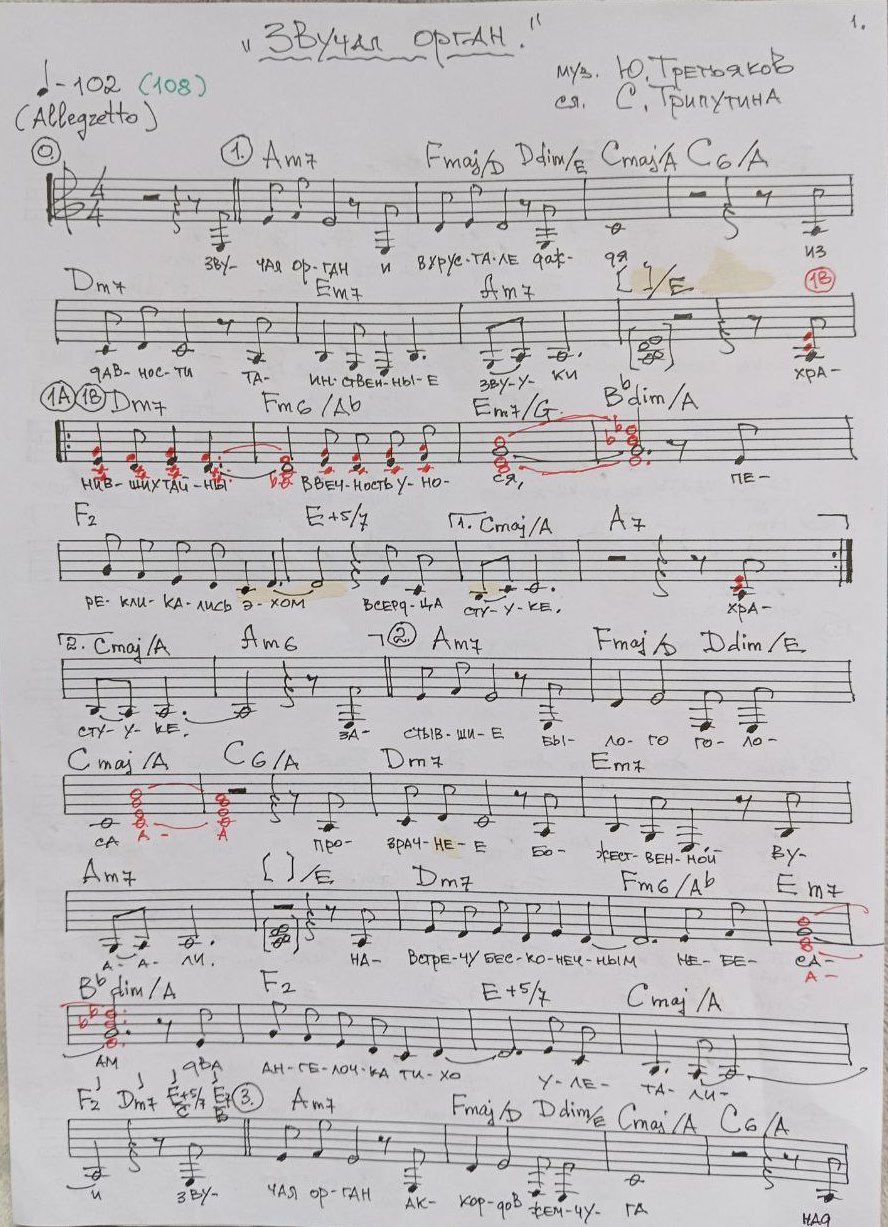 „Звучал орган."
1.
♩- 102 (108)
муз. Ю. Третьяков
(Allegretto)
сл. С. Трипутина
0. 1. Am7 Fmaj/D Ddim/E Cmaj/A C6/A
4/4
ЗВУ- ЧАЛ ОР-ГАН И В ХРУС-ТА-ЛЕ ДОЖ- ДЯ ИЗ
Dm7 Em7 Am7 [ ]/E 1B
ДАВ- НОС-ТИ ТА- ИН-СТВЕН-НЫ-Е ЗВУ-У- КИ ХРА-
1A 1B Dm7 Fm6/Ab Em7/G Bbdim/A
НИВ- ШИХ ТАЙ-НЫ В ВЕЧ-НОСТЬ У- НО- СЯ, ПЕ-
F2 E+5/7 1. Cmaj/A A7
РЕ- КЛИ- КА-ЛИСЬ Э-ХОМ В СЕРД-ЦА СТУ-У-КЕ. ХРА-
2. Cmaj/A Am6 2. Am7 Fmaj/D Ddim/E
СТУ-У-КЕ. ЗА- СТЫВ-ШИ-Е БЫ- ЛО-ГО ГО-ЛО-
Cmaj/A C6/A Dm7 Em7
СА А - А ПРО- ЗРАЧ-НЕ-Е БО- ЖЕСТ-ВЕН-НОЙ ВУ-
Am7 [ ]/E Dm7 Fm6/Ab Em7
А-А-ЛИ. НА- ВСТРЕ-ЧУ БЕС-КО-НЕЧ-НЫМ НЕ-БЕ- СА-
А-
Bbdim/A F2 E+5/7 Cmaj/A
АМ АН-ГЕ-ЛОЧ-КА ТИ-ХО У-ЛЕ- ТА-ЛИ-
ДВА
F2 Dm7 E+5/7/C E7/B 3. Am7 Fmaj/D Ddim/E Cmaj/A C6/A
И ЗВУ- ЧАЛ ОР-ГАН АК- КОР-ДОВ ЖЕМ-ЧУ- ГА НАД